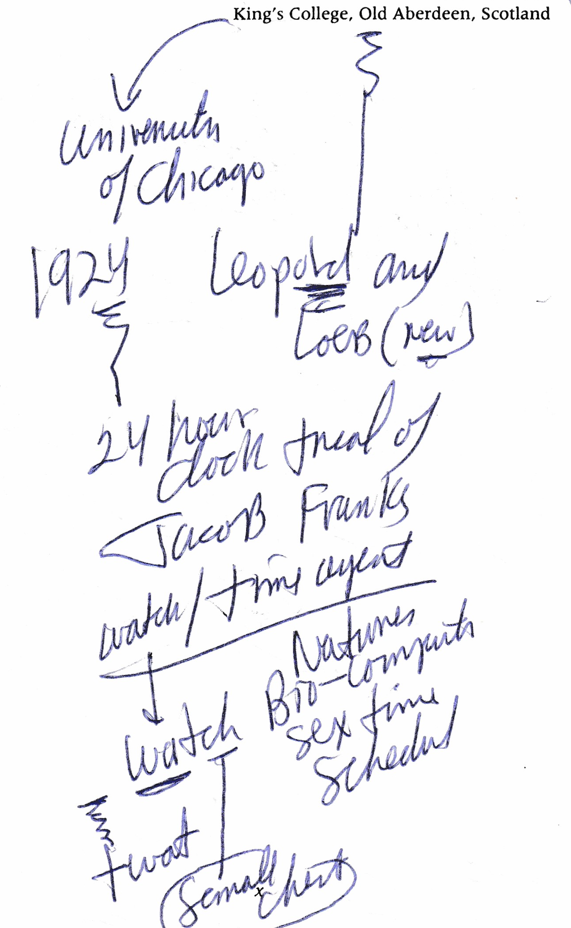 King's College, Old Aberdeen, Scotland
University
of Chicago
1924 Leopold and
Loeb (new)
24 hour
clock trial of
Jacob Franks
watch/time agent
Natures
Bio-computer
sex time
Schedul
watch
twat
chert